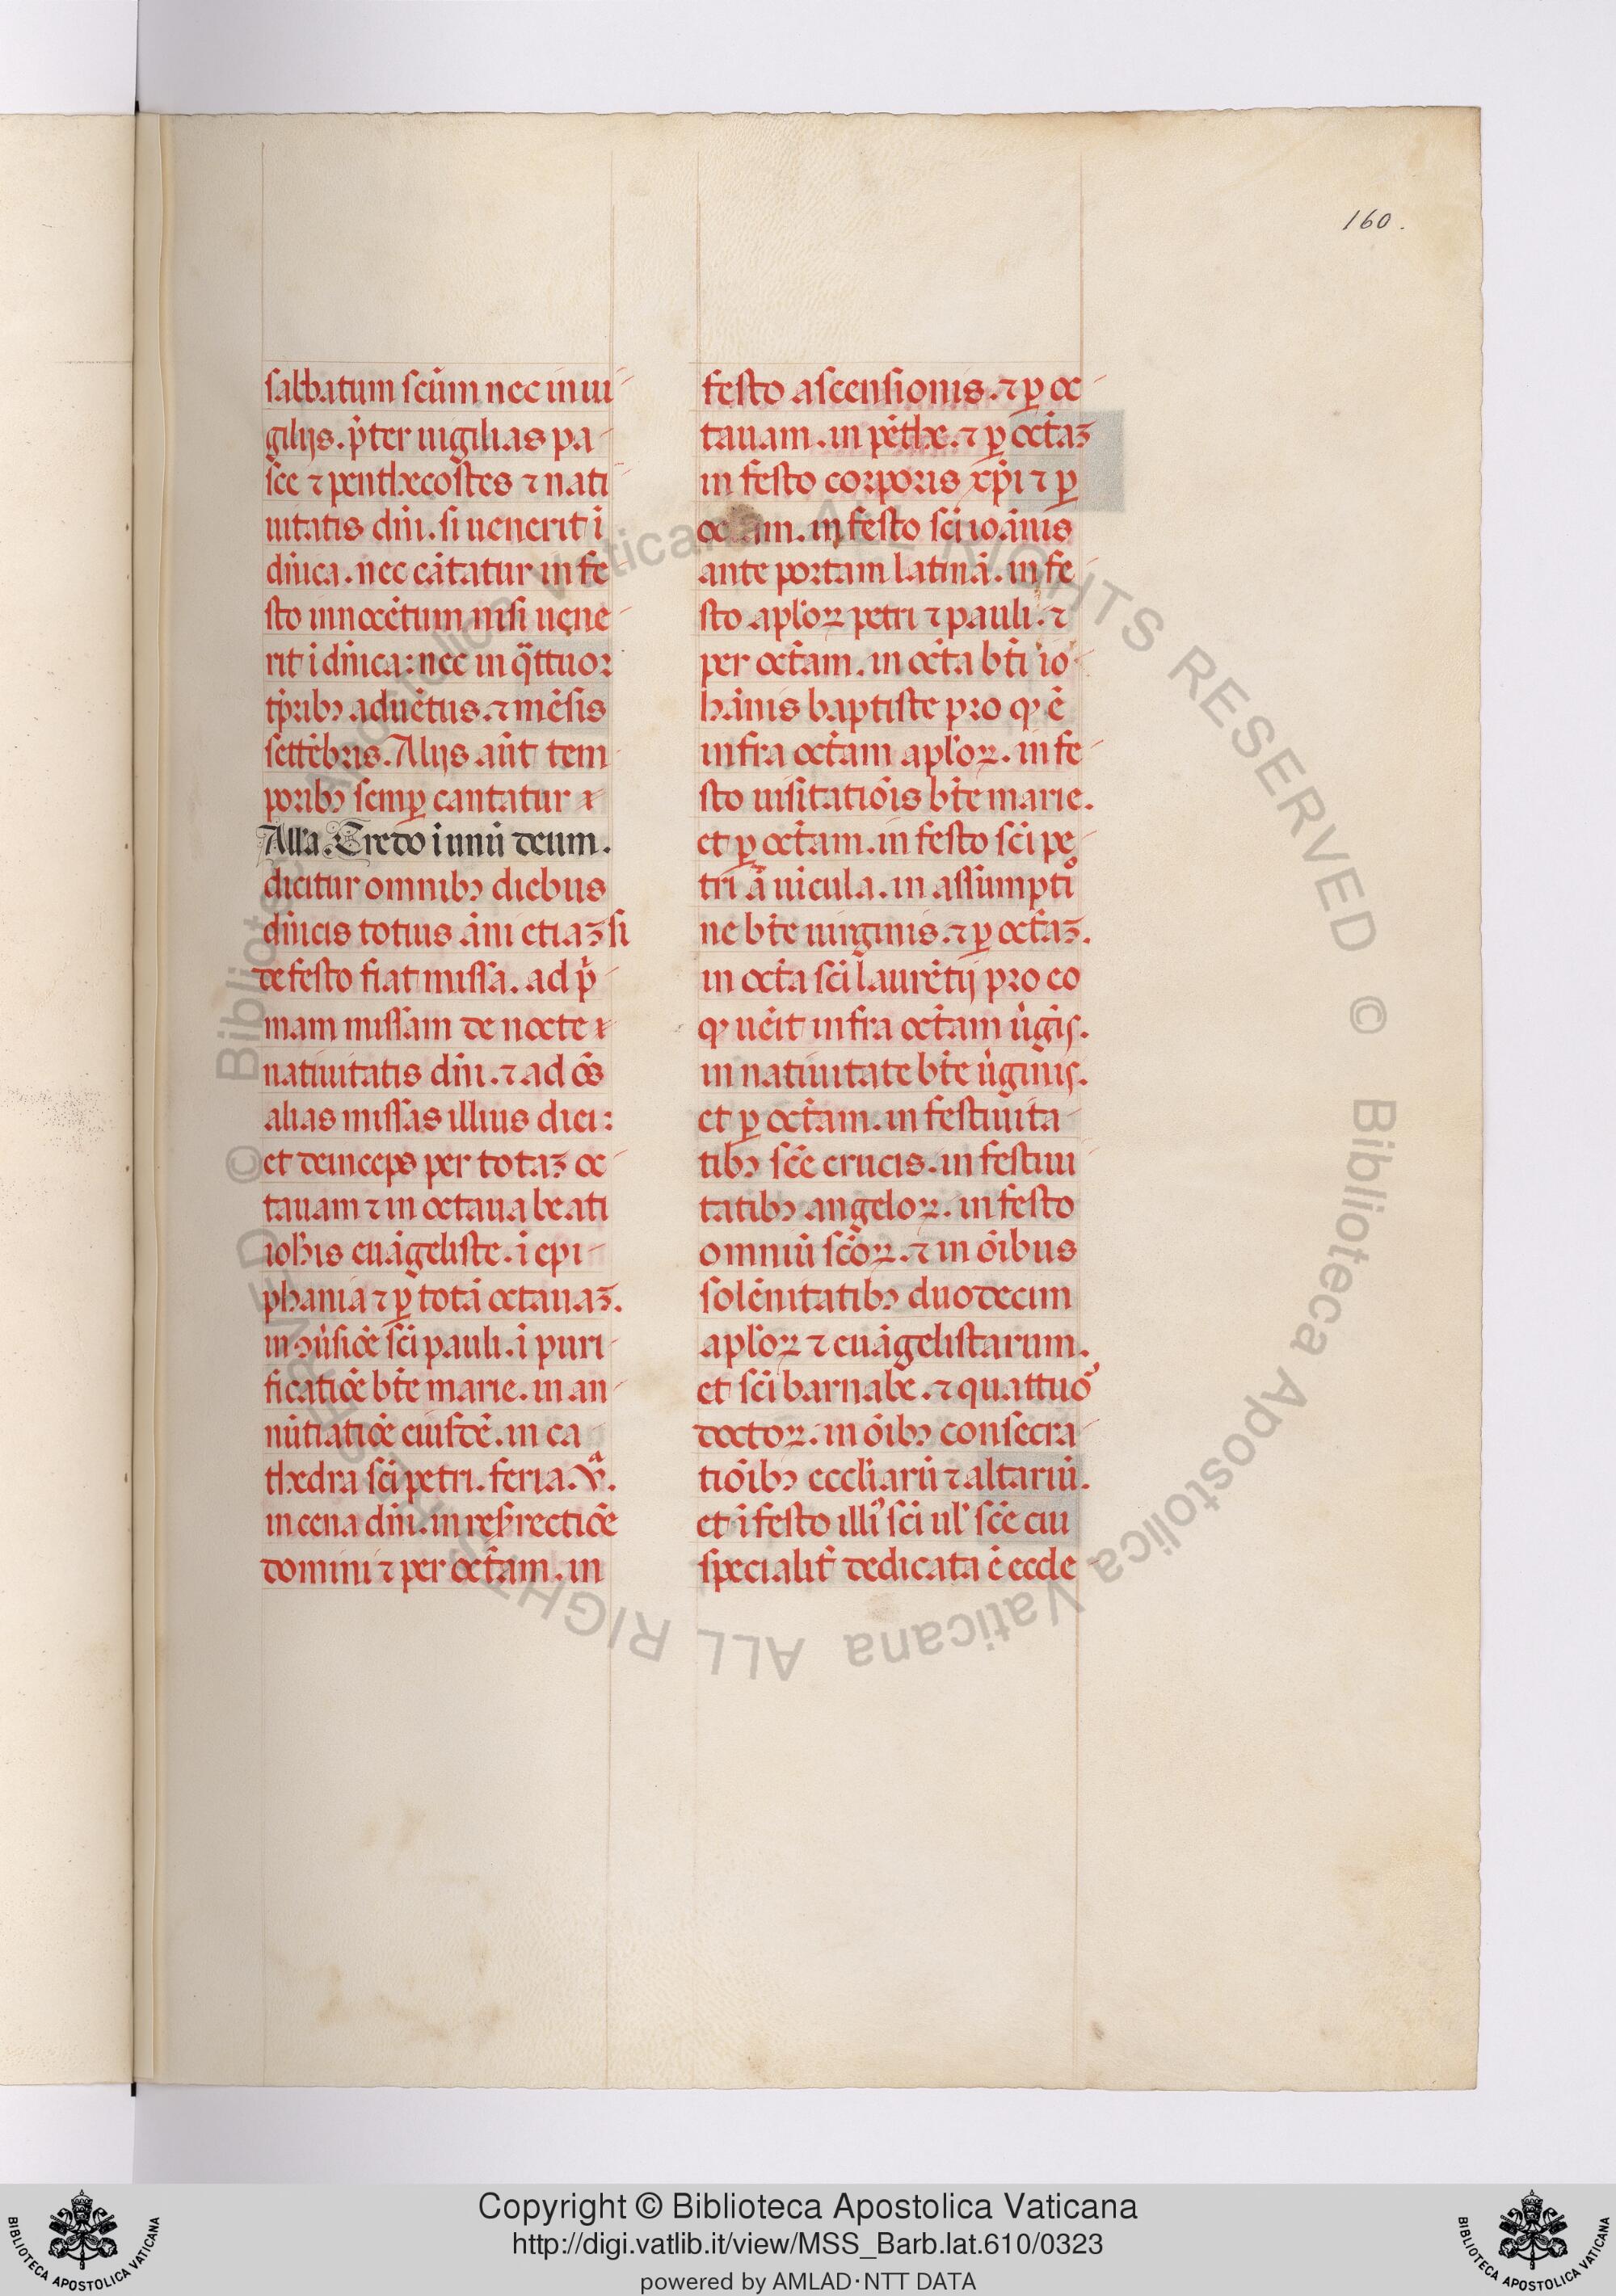 160.
sabbatum scu̅m nec in ui
gilijs. p̅ter uigilias pa
sce ⁊ penthecostes ⁊ nati
uitatis dn̅i. si uenerit i̅
dn̅ica. nec ca̅tatur in fe
sto innoce̅tum nisi uene
rit i̅ dn̅ica: nec in q̅ttuor
tp̅ribꝫ adue̅tus. ⁊ me̅sis
sette̅bris. Alijs au̅t tem
poribꝫ semꝑ cantatur
Alla. Credo i̅ unu̅ deum.
dicitur omnibꝫ diebus
dn̅icis totius a̅ni etiaꝫ si
de festo fiat missa. ad p̅
mam missam de nocte
natiuitatis dn̅i. ⁊ ad o̅s
alias missas illius diei:
et deinceps per totaꝫ oc
tauam ⁊ in octaua beati
ioh̅is eua̅geliste. i̅ epi
phania ⁊ ꝑ tota̅ octauaꝫ.
in ꝯu̅sio̅e sc̅i pauli. i̅ puri
ficatio̅e bt̅e marie. in an
nu̅tiatio̅e eiusde̅. in ca
thedra sc̅i petri. feria. v̅.
in cena dn̅i. in resrectio̅e
domini ⁊ per oct̅am. in
festo ascensionis. ⁊ ꝑ oc
tauam. in pe̅the. ⁊ ꝑ oct̅aꝫ
in festo corporis xp̅i ⁊ ꝑ
oc̅tam. in festo sc̅i io.a̅nis
ante portam latina̅. in fe
sto aplo̅ꝝ petri ⁊ pauli. ⁊
per oct̅am. in oct̅a bt̅i io
ha̅nis baptiste pro qꝫ e̅
infra oct̅am aplo̅ꝝ. in fe
sto uisitatio̅is bt̅e marie.
et ꝑ oct̅am. in festo sc̅i pe
tri a̅ ui̅cula. in assumptio
ne bt̅e uirginis. ⁊ ꝑ oct̅aꝫ.
in oct̅a sc̅i laure̅tij pro eo
qꝫ ue̅it infra oct̅am u̅gi̅s.
in natiuitate bt̅e u̅ginis.
et ꝑ oct̅am. in festiuita
tibꝫ sc̅e crucis. in festiui
tatibꝫ angeloꝝ. in festo
omniu̅ sc̅oꝝ. ⁊ in o̅ibus
sole̅nitatibꝫ duodecim
aplo̅ꝝ ⁊ eua̅gelistarum.
et sc̅i barnabe. ⁊ quattuo̅
doctoꝝ. in o̅ibꝫ consecra
tio̅ibꝫ eccli̅aru̅ ⁊ altariu̅.
et i̅ festo illiꝰ sc̅i ul̅ sc̅e cui
specialit̅ dedicata e̅ eccle
Copyright © Biblioteca Apostolica Vaticana
http://digi.vatlib.it/view/MSS_Barb.lat.610/0323
powered by AMLAD·NTT DATA
BIBLIOTECA APOSTOLICA VATICANA
BIBLIOTECA APOSTOLICA VATICANA
© Biblioteca Apostolica Vaticana ALL RIGHTS RESERVED
© Biblioteca Apostolica Vaticana ALL RIGHTS RESERVED